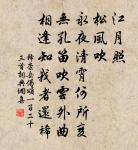 江月照
松風吹
永夜清霄何所爲
無孔笛吹雲外曲
相逢知我者還稀
釋崇岳偈頌一百二十
三首詞典網集